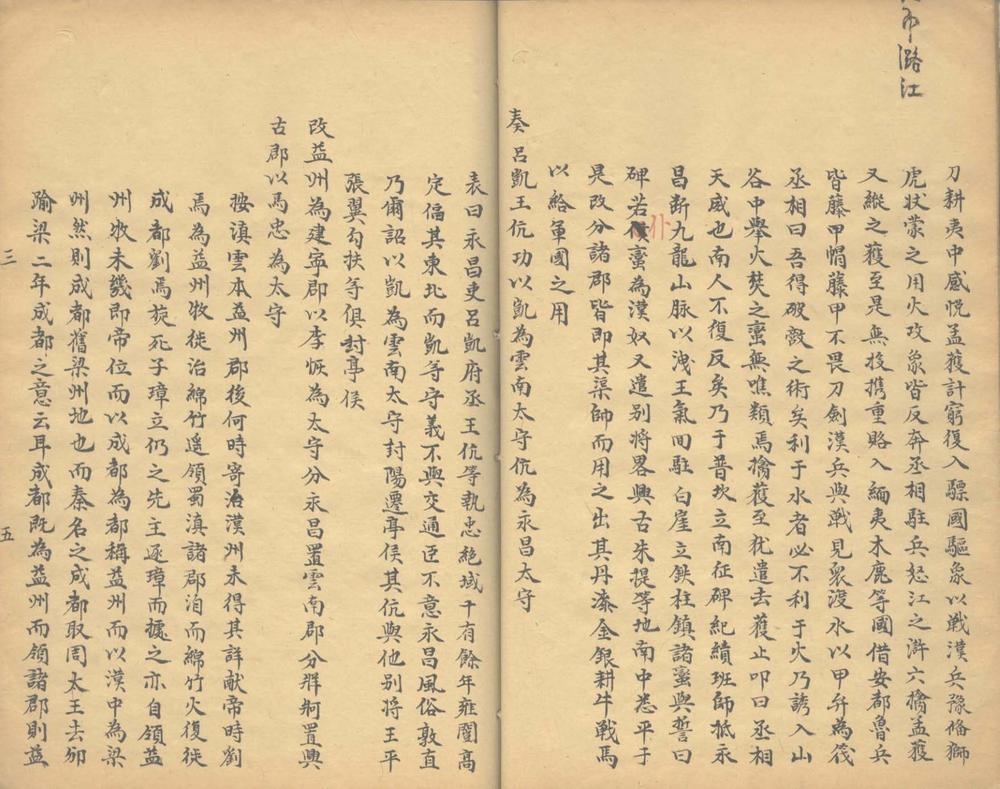 布潞江
刀耕夷中感悅孟獲計窮復入驃國驅象以戰漢兵豫脩獅
虎狀蒙之用火攻象皆反奔丞相駐兵怒江之滸六擒孟獲
又縱之獲至是無投携重賂入緬夷木鹿等國借安都魯兵
皆藤甲帽藤甲不畏刀劍漢兵與戰見衆渡水以甲弁為筏
丞相曰吾得破敵之術矣利于水者必不利于火乃誘入山
谷中舉火焚之蠻無噍類焉擒獲至犹遣去獲止叩曰丞相
天威也南人不復反矣乃于普坎立南征碑紀績班師抵永
昌断九龍山脉以洩王氣囬駐白崖立鉄柱鎮諸蠻與誓曰
碑若仆蠻為漢奴又遣别將畧興古朱提等地南中悉平于
是改分諸郡皆即其渠師而用之出其丹漆金銀耕牛戰馬
以給軍國之用
奏呂凱王伉功以凱為雲南太守伉為永昌太守
表曰永昌吏呂凱府丞王伉等執忠絶域十有餘年雍闓高
定偪其東北而凱等守義不與交通臣不意永昌風俗敦直
乃爾詔以凱為雲南太守封陽遷亭侯其伉與他别將王平
張翼勾扶等俱封亭侯
改益州為建寕郡以李恢為太守分永昌置雲南郡分牂牁置興
古郡以馬忠為太守
按滇雲本益州郡後何時寄治漢州未得其詳献帝時劉
焉為益州牧徙治綿竹遥領蜀滇諸郡洎而綿竹火復徙
成都劉焉旋死子璋立仍之先主逐璋而據之亦自領益
州牧未幾即帝位而以成都為都稱益州而以漢中為梁
州然則成都舊梁州地也而秦名之成都取周太王去邠
踰梁二年成都之意云耳成都既為益州而領諸郡則益
三
五